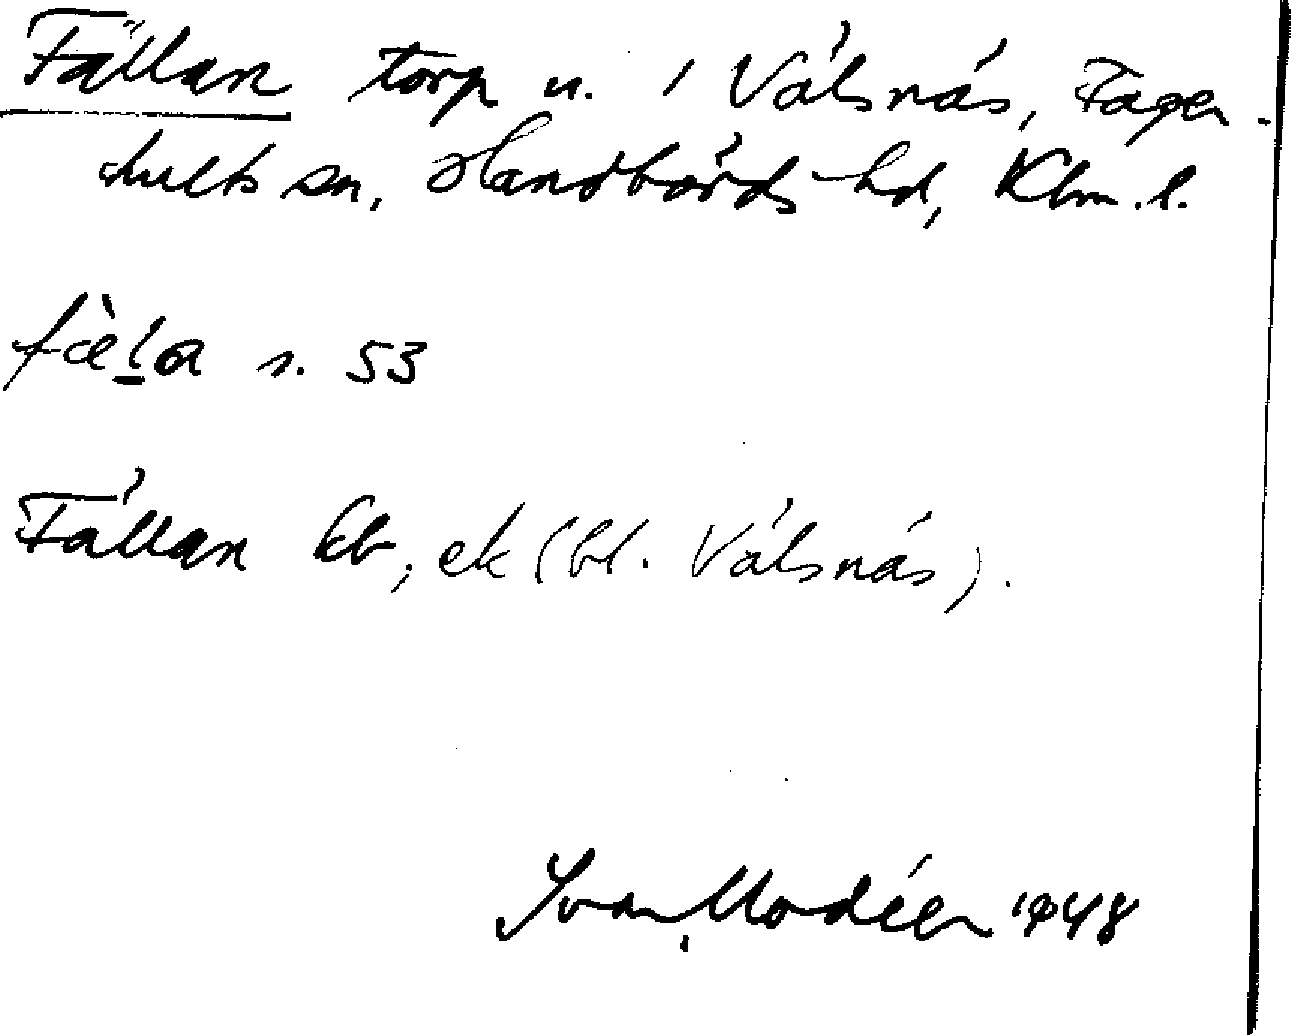 Fällan torp u. / Válsnás, Fager-
hults sn, Handbörds hd, Klm. l.
fæ̀l̲a s. 53
Fällan kb, ek (bl. Válsnás).
Ivar Modéer 1948